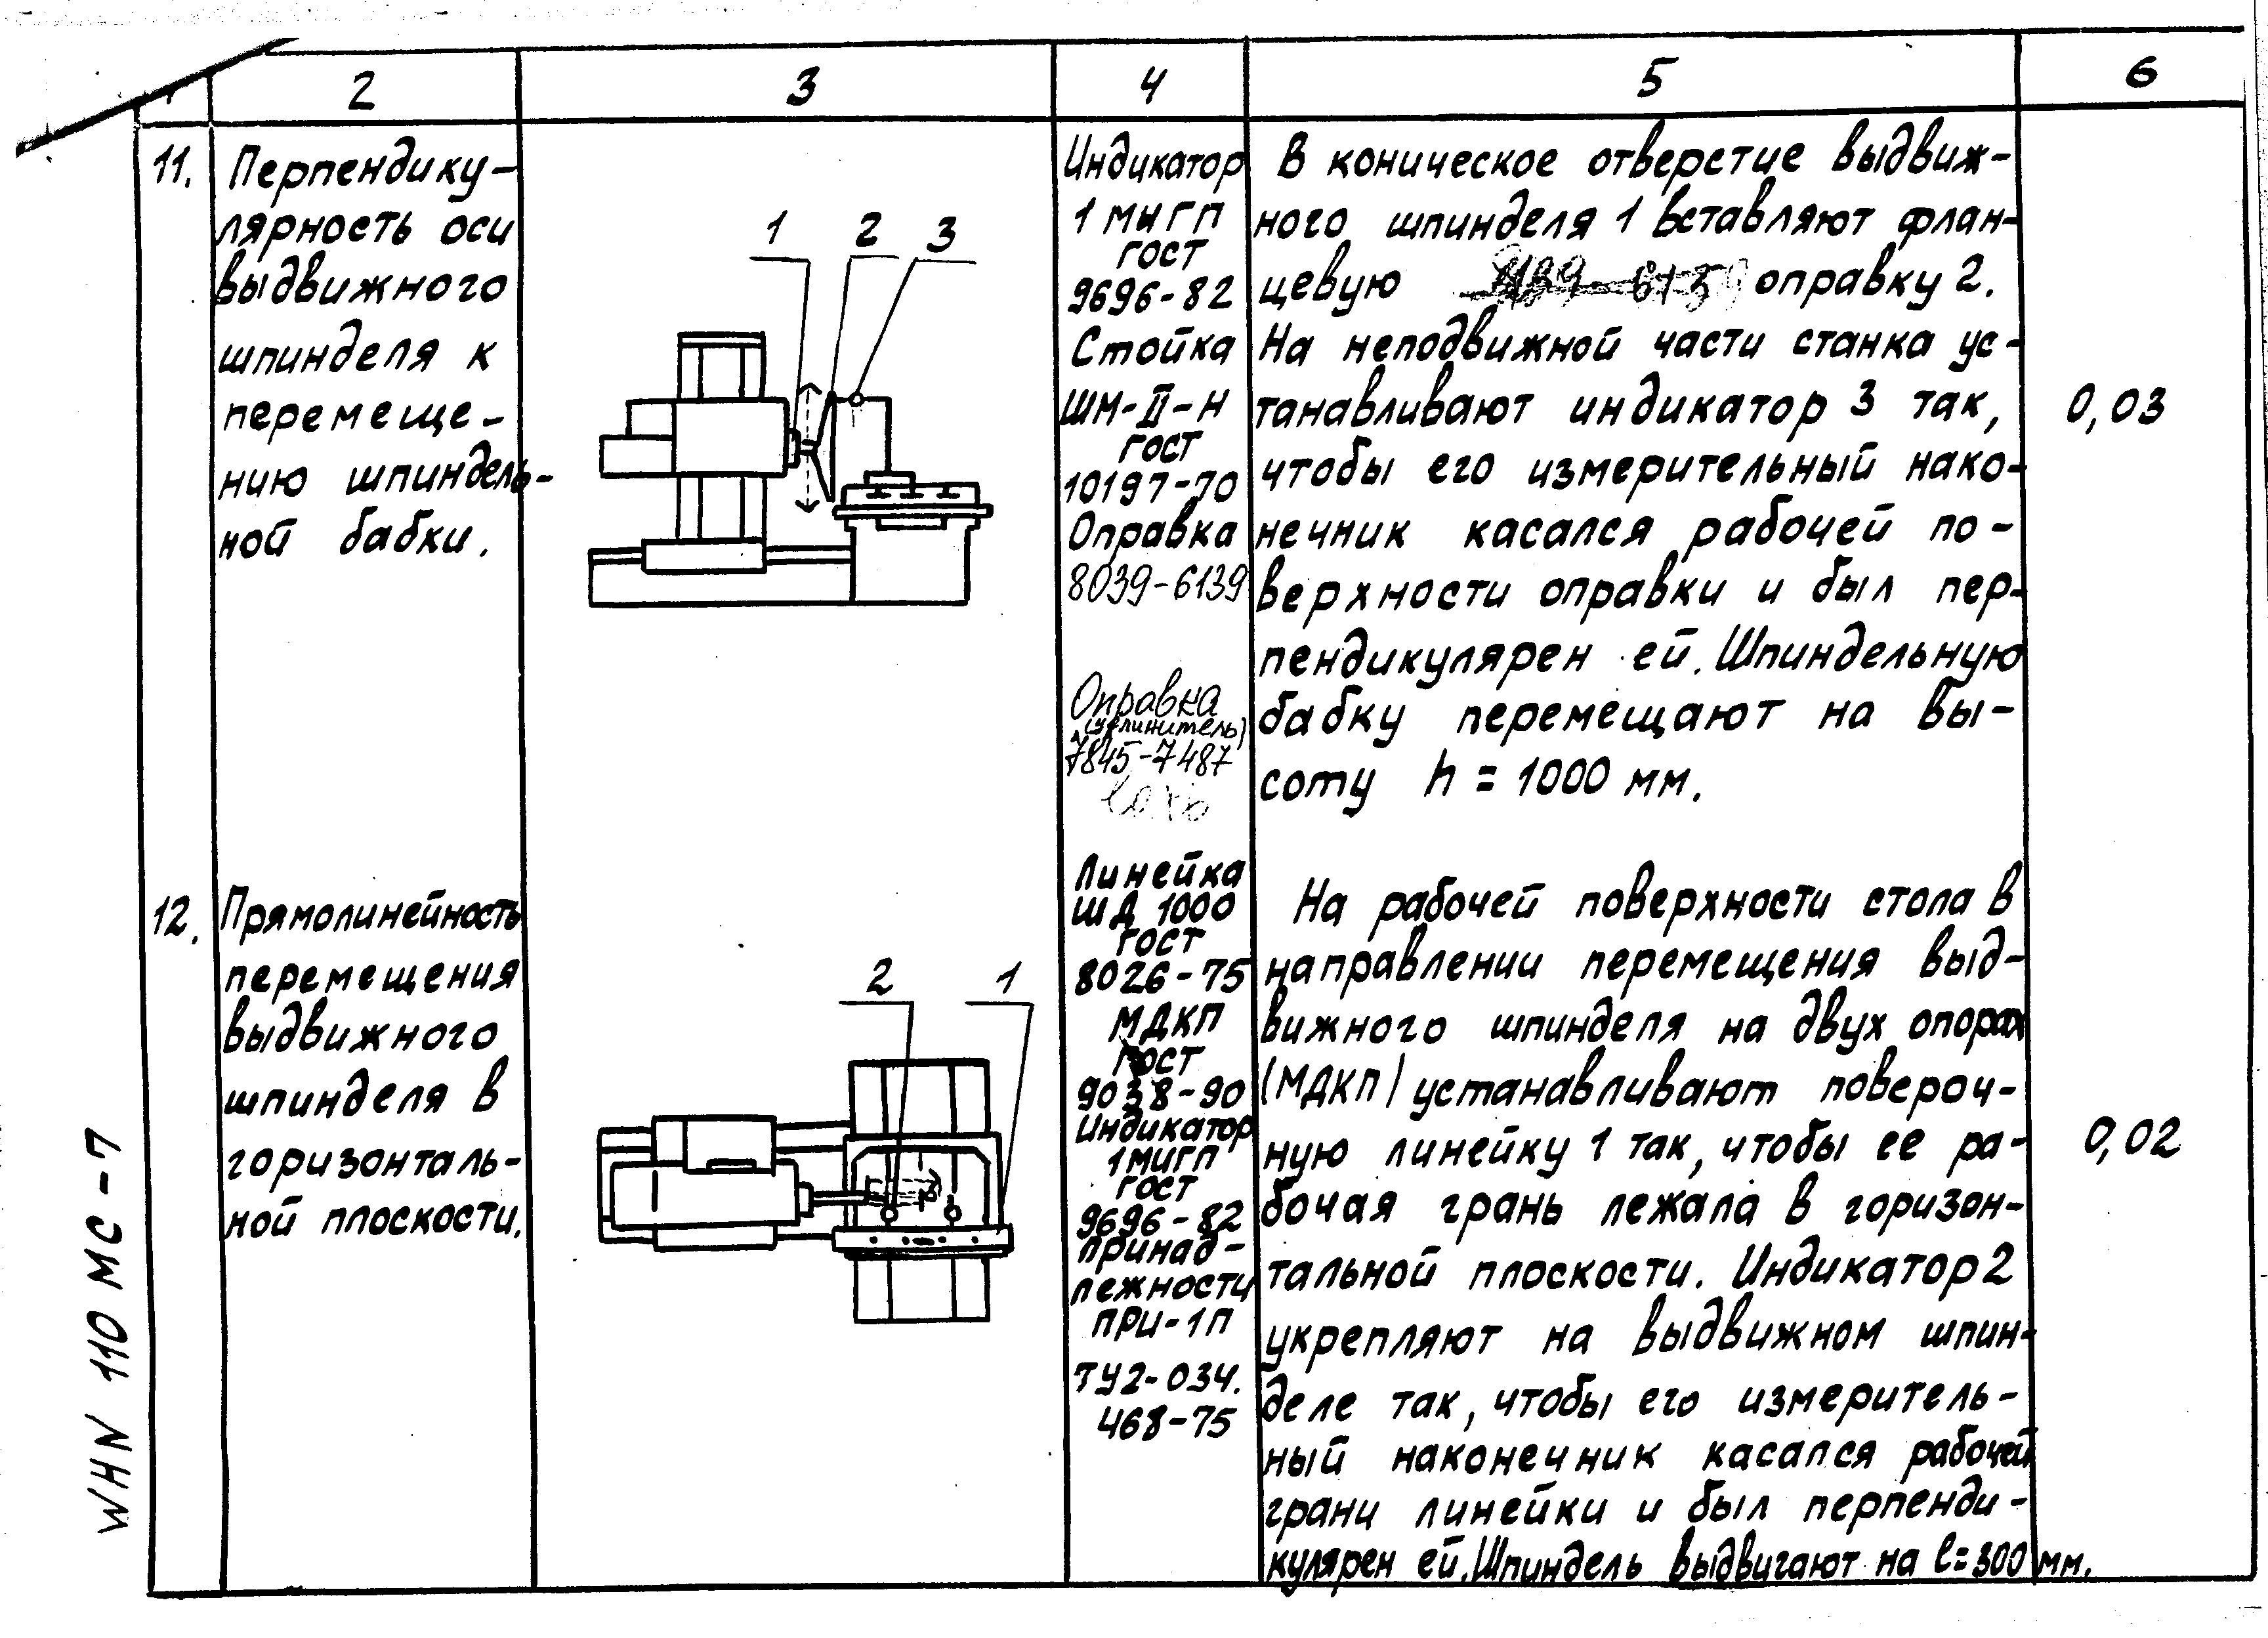 1 2 3 4 5 6
11.
Перпендику-
лярность оси
выдвижного
шпинделя к
перемеще-
нию шпиндель-
ной бабки.
1 2 3
Индикатор
1 МИГП
ГОСТ
9696-82
Стойка
ШМ-II-Н
ГОСТ
10197-70
Оправка
8039-6139
Оправка
(удлинитель)
7845-7487
В коническое отверстие выдвиж-
ного шпинделя 1 вставляют флан-
цевую оправку 2.
На неподвижной части станка ус-
танавливают индикатор 3 так,
чтобы его измерительный нако-
нечник касался рабочей по-
верхности оправки и был пер-
пендикулярен ей. Шпиндельную
бабку перемещают на вы-
соту h = 1000 мм.
0,03
12.
Прямолинейность
перемещения
выдвижного
шпинделя в
горизонталь-
ной плоскости.
2 1
Линейка
ШД 1000
ГОСТ
8026-75
МДКП
ГОСТ
9038-90
Индикатор
1МИГП
ГОСТ
9696-82
принад-
лежности
ПРИ-1П
ТУ2-034.
468-75
На рабочей поверхности стола в
направлении перемещения выд-
вижного шпинделя на двух опорах
(МДКП) устанавливают повероч-
ную линейку 1 так, чтобы ее ра-
бочая грань лежала в горизон-
тальной плоскости. Индикатор 2
укрепляют на выдвижном шпин-
деле так, чтобы его измеритель-
ный наконечник касался рабочей
грани линейки и был перпенди-
кулярен ей. Шпиндель выдвигают на l=300 мм.
0,02
WHN 110 MC-7